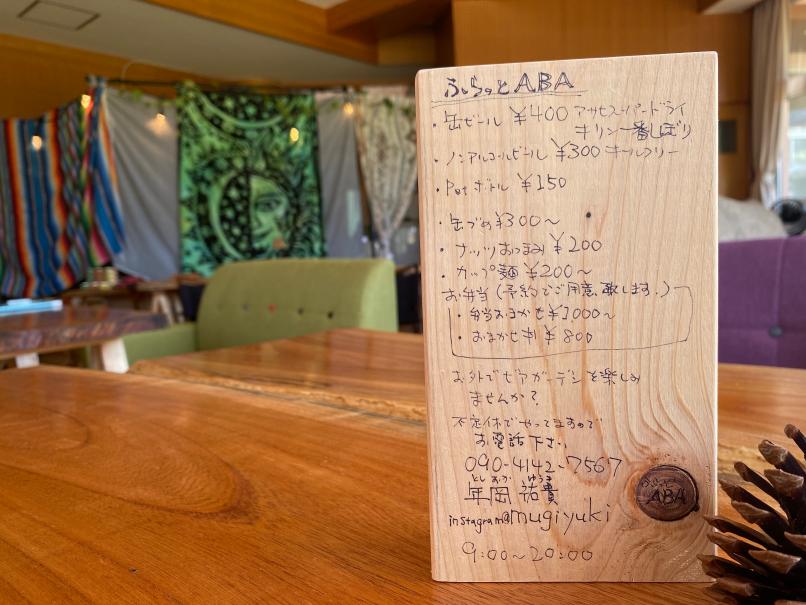 ふらっとABA
・缶ビール ¥400 アサヒスーパードライ
キリン一番しぼり
・ノンアルコールビール ¥300 オールフリー
・Petボトル ¥150
・缶づめ ¥300〜
・ナッツおつまみ ¥200
・カップ麺 ¥200〜
お弁当(予約でご用意致します。)
・弁当おまかせ ¥1000〜
・おまかせ丼 ¥800
お外でビアガーデンを楽しみ
ませんか?
不定休でやってますので
お電話下さい。
090-4142-7567
としおか ゆうき
年岡 祐貴
instagram@mugiyuki
9:00〜20:00
ふらっと
ABA